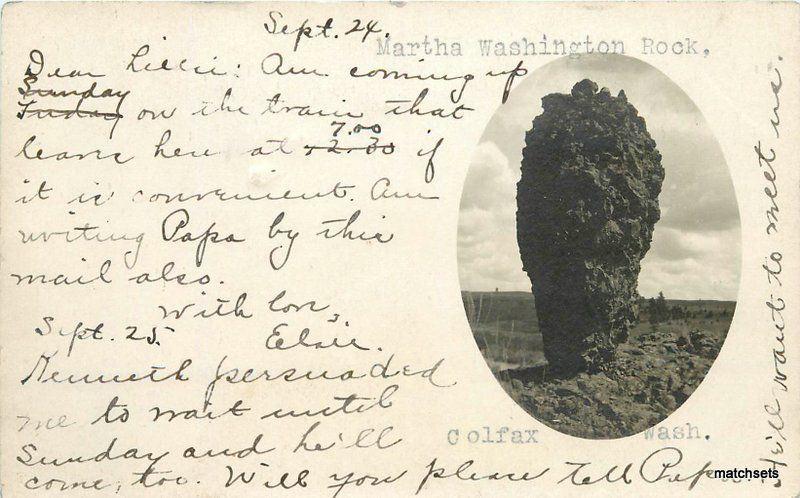 Sept. 24.
Martha Washington Rock,
Dear Lillie: Am coming up
Sunday
Friday on the train that
7.00
leaves here at 2.30 if
it is convenient. Am
writing Papa by this
mail also.
With love,
Elsie.
Sept. 25.
Kenneth persuaded
me to wait until
Sunday and he'll
come, too. Will you please tell Papa.
He'll want to meet us.
Colfax Wash.
matchsets